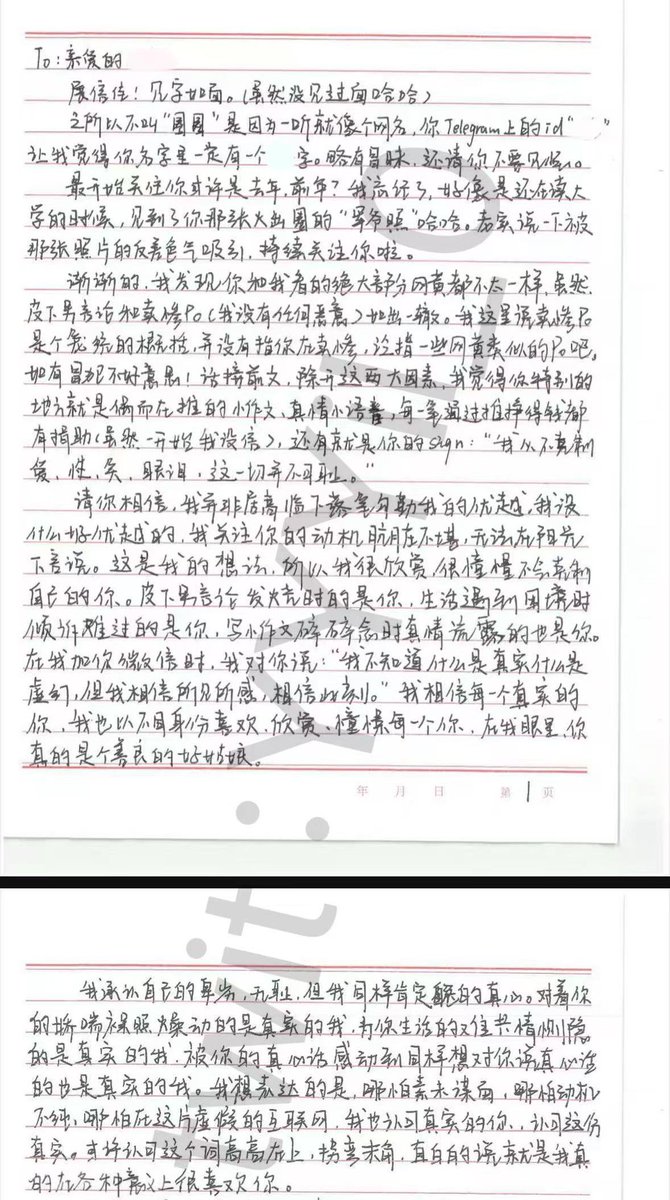 To:亲爱的
展信佳！见字如面。(虽然没见过面哈哈)
之所以不叫“圆圆”是因为一听就像个网名，你Telegram上的id“ ”
让我觉得你名字里一定有一个 字。略有冒昧，还请你不要见怪。
最开始关注你或许是去年，前年？我忘记了，好像是还在读大
学的时候，见到了你那张火出圈的“军爷照”哈哈。老实说一下被
那张照片的反差色气吸引，持续关注你啦。
渐渐的，我发现你和我看的绝大部分网黄都不太一样，虽然
皮下男言论和卖惨Po(我没有任何恶意)如出一辙。我这里说卖惨Po
是个笼统的概括，并没有指你在卖惨，泛指一些网黄类似的Po吧，
如有冒犯不好意思！话接前文，除开这两大因素，我觉得你特别的
地方就是偶而在推的小作文，真情小语，每一笔通过推挣得钱都
有捐助(虽然一开始我没信)，还有就是你的Sign：“我从不克制
爱，性，哭，眼泪，这一切并不可耻。”
请你相信，我并非居高临下落笔勾勒我的优越，我没
什么好优越的，我关注你的动机肮脏不堪，无法在阳光
下言说。这是我的想法，所以我很欣赏，很憧憬不会克制
自己的你。皮下男言论发烧时的是你，生活遇到困境时
倾诉难过的是你，写小作文碎碎念时真情流露的也是你。
在我加你微信时，我对你说：“我不知道什么是真实什么是
虚幻，但我相信所见所感，相信此刻。”我相信每一个真实的
你，我也以不同身份喜欢，欣赏，憧憬每一个你，在我眼里，你
真的是个善良的好姑娘。
年 月 日 第 1 页
我承认自己的卑劣，无耻，但我同样肯定我的真心。对着你
的娇喘裸照燥动的是真实的我，为你生活的过往共情恻隐
的是真实的我，被你的真心话感动到同样想对你说真心话
的也是真实的我。我想表达的是，哪怕素未谋面，哪怕动机
不纯，哪怕在这片虚假的互联网，我也认可真实的你，认可这份
真实。或许认可这个词高高在上，拐弯末角，直白的说就是我真
的在各种意义上很喜欢你。